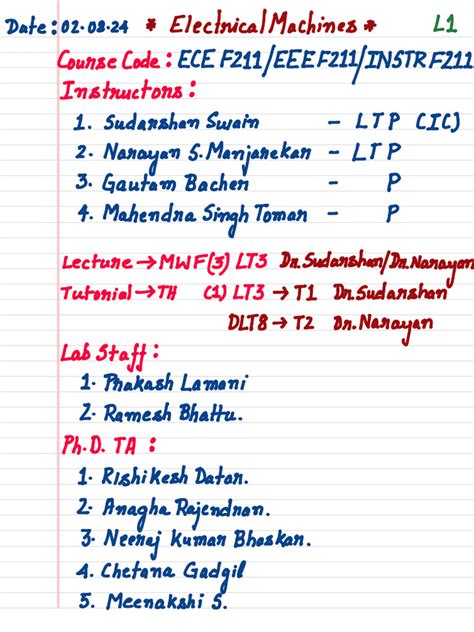 Date: 02.08.24 * Electrical Machines * L1
Course Code: ECE F211/EEE F211/INSTR F211
Instructors:
1. Sudarshan Swain - LTP (IC)
2. Narayan S. Manjarekar - LTP
3. Gautam Bacher - P
4. Mahendra Singh Tomar - P
Lecture → MWF(3) LT3 Dr. Sudarshan/Dr. Narayan
Tutorial → TH (1) LT3 → T1 Dr. Sudarshan
DLT8 → T2 Dr. Narayan
Lab Staff:
1. Prakash Lamani
2. Ramesh Bhattu.
Ph.D. TA :
1. Rishikesh Datar.
2. Anagha Rajendran.
3. Neeraj Kumar Bhaskar.
4. Chetana Gadgil
5. Meenakshi S.